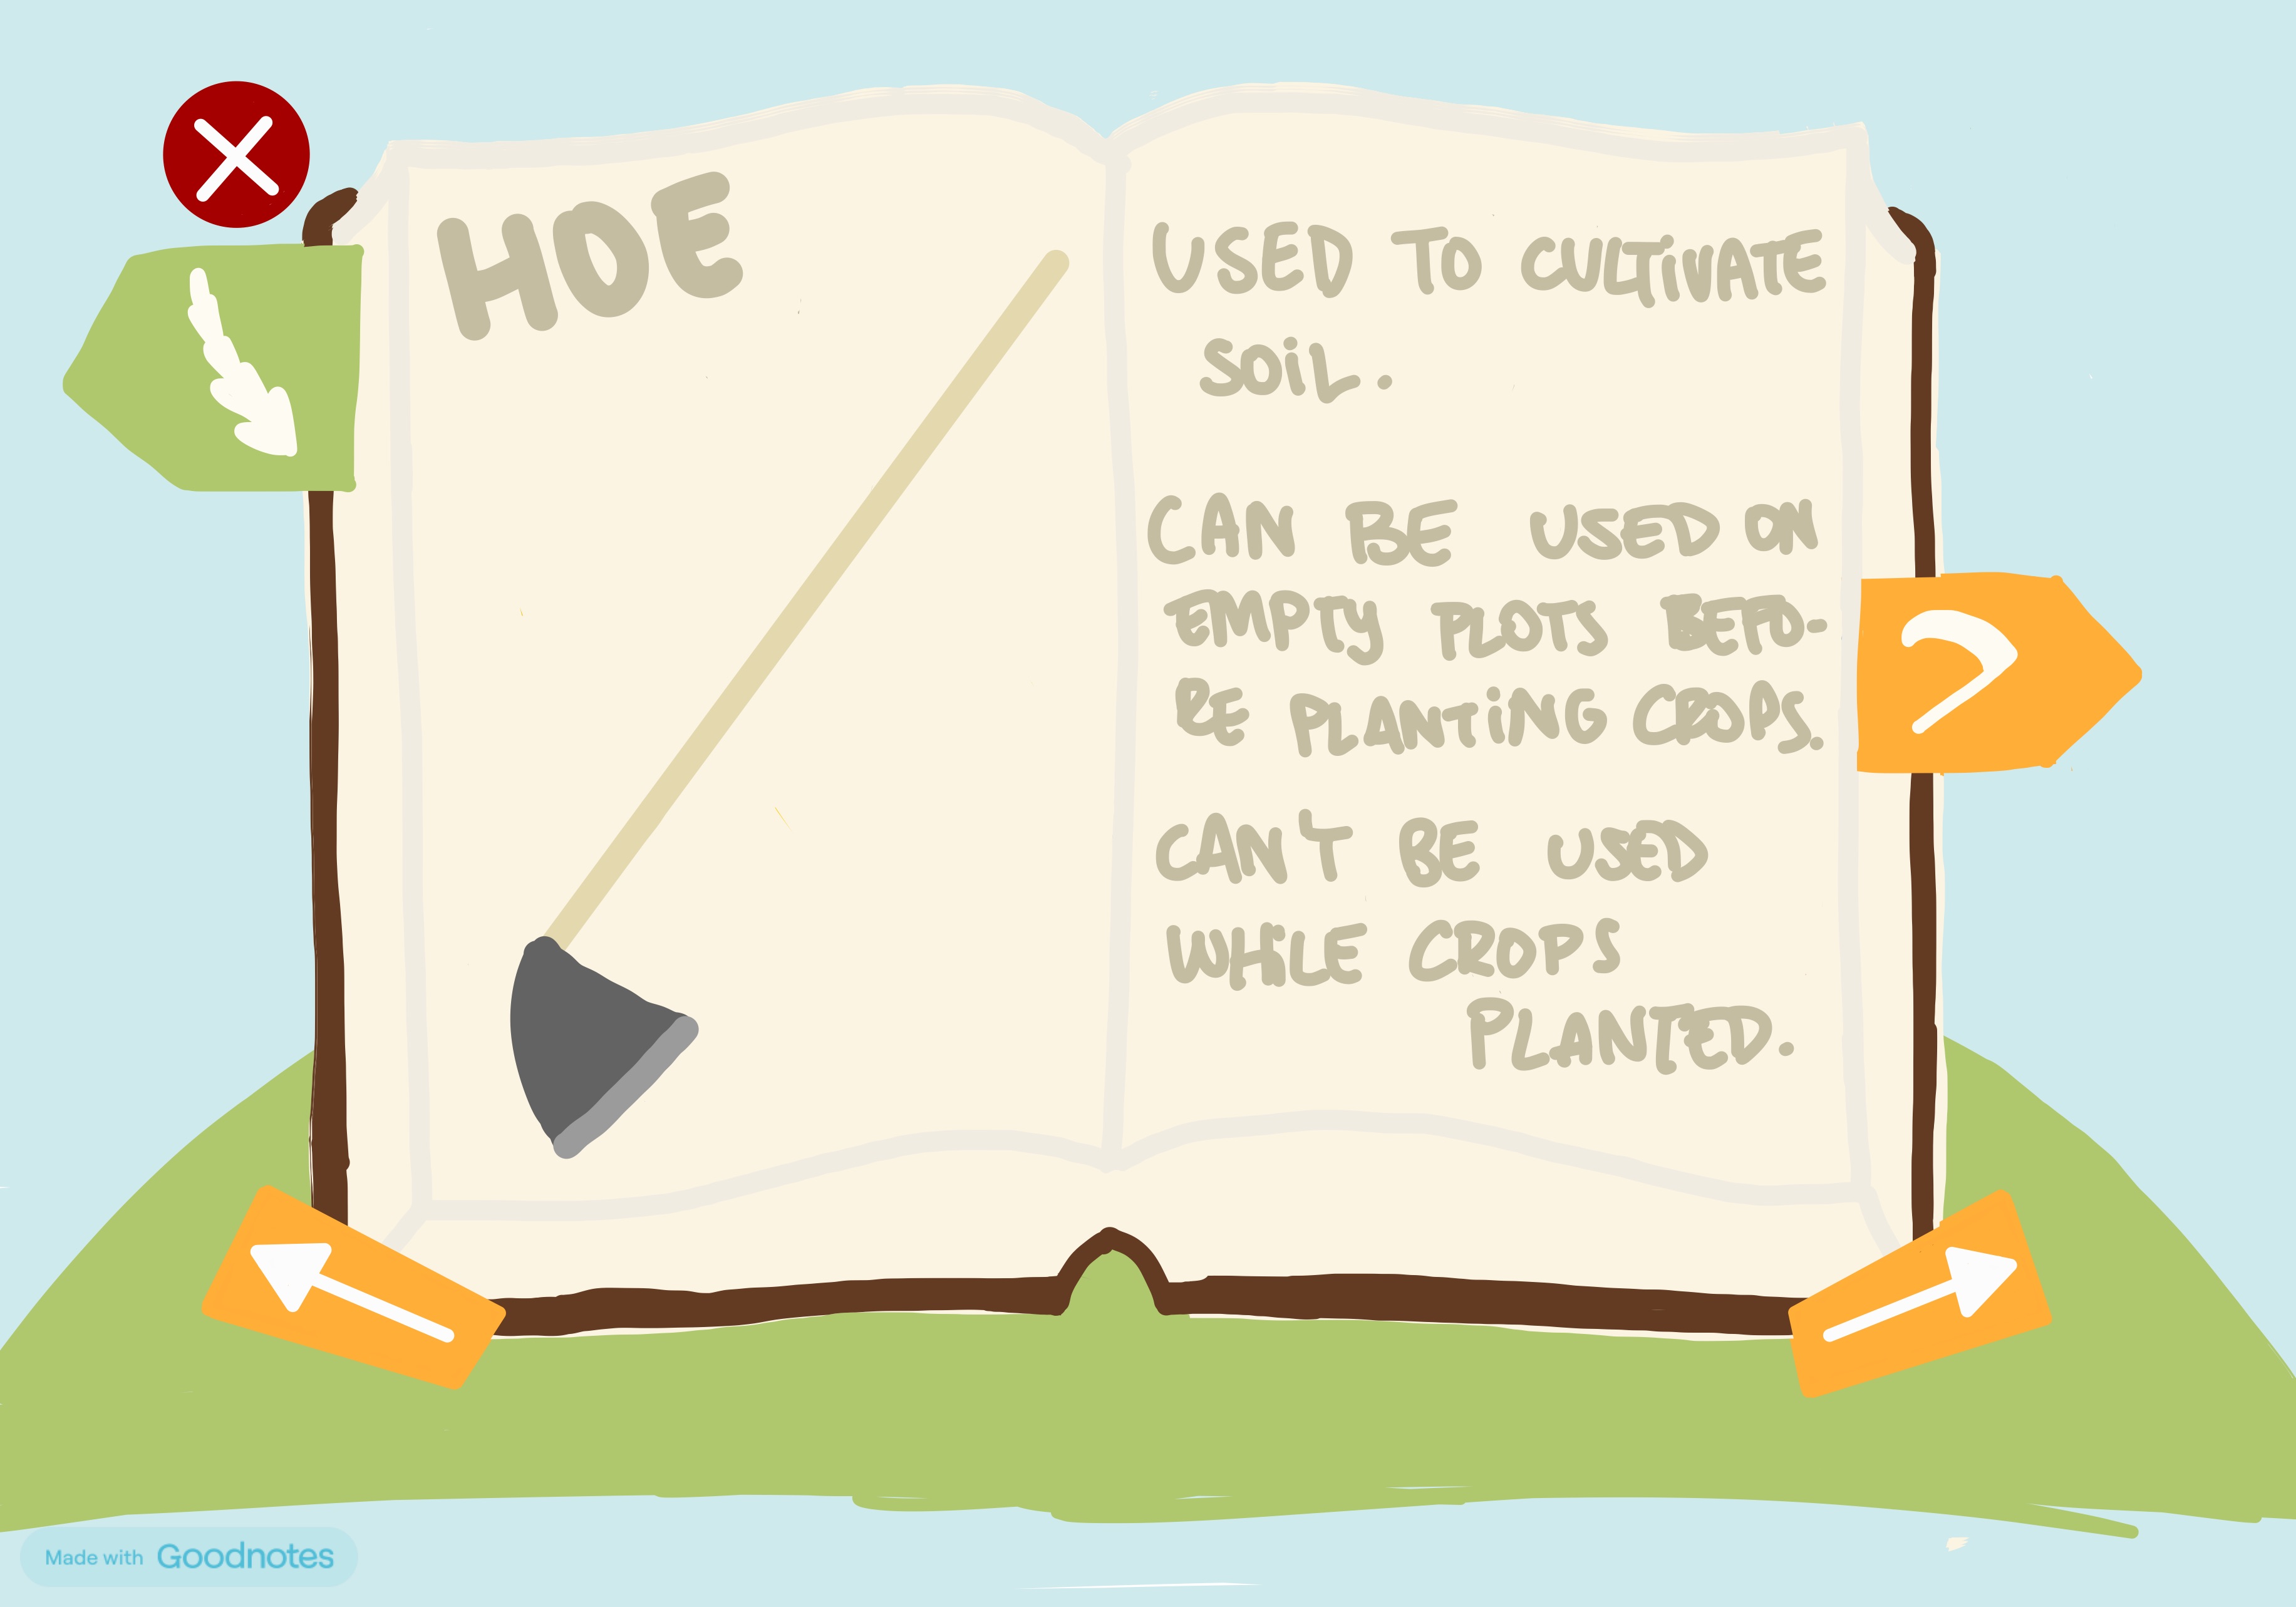 HOE
USED TO CULTiVATE
SOiL.
CAN BE USED ON
EMPTy PLOTS BEFO-
RE PLANTiNG CROPS.
CAN'T BE USED
WHILE CROPS
PLANTED.
Made with Goodnotes